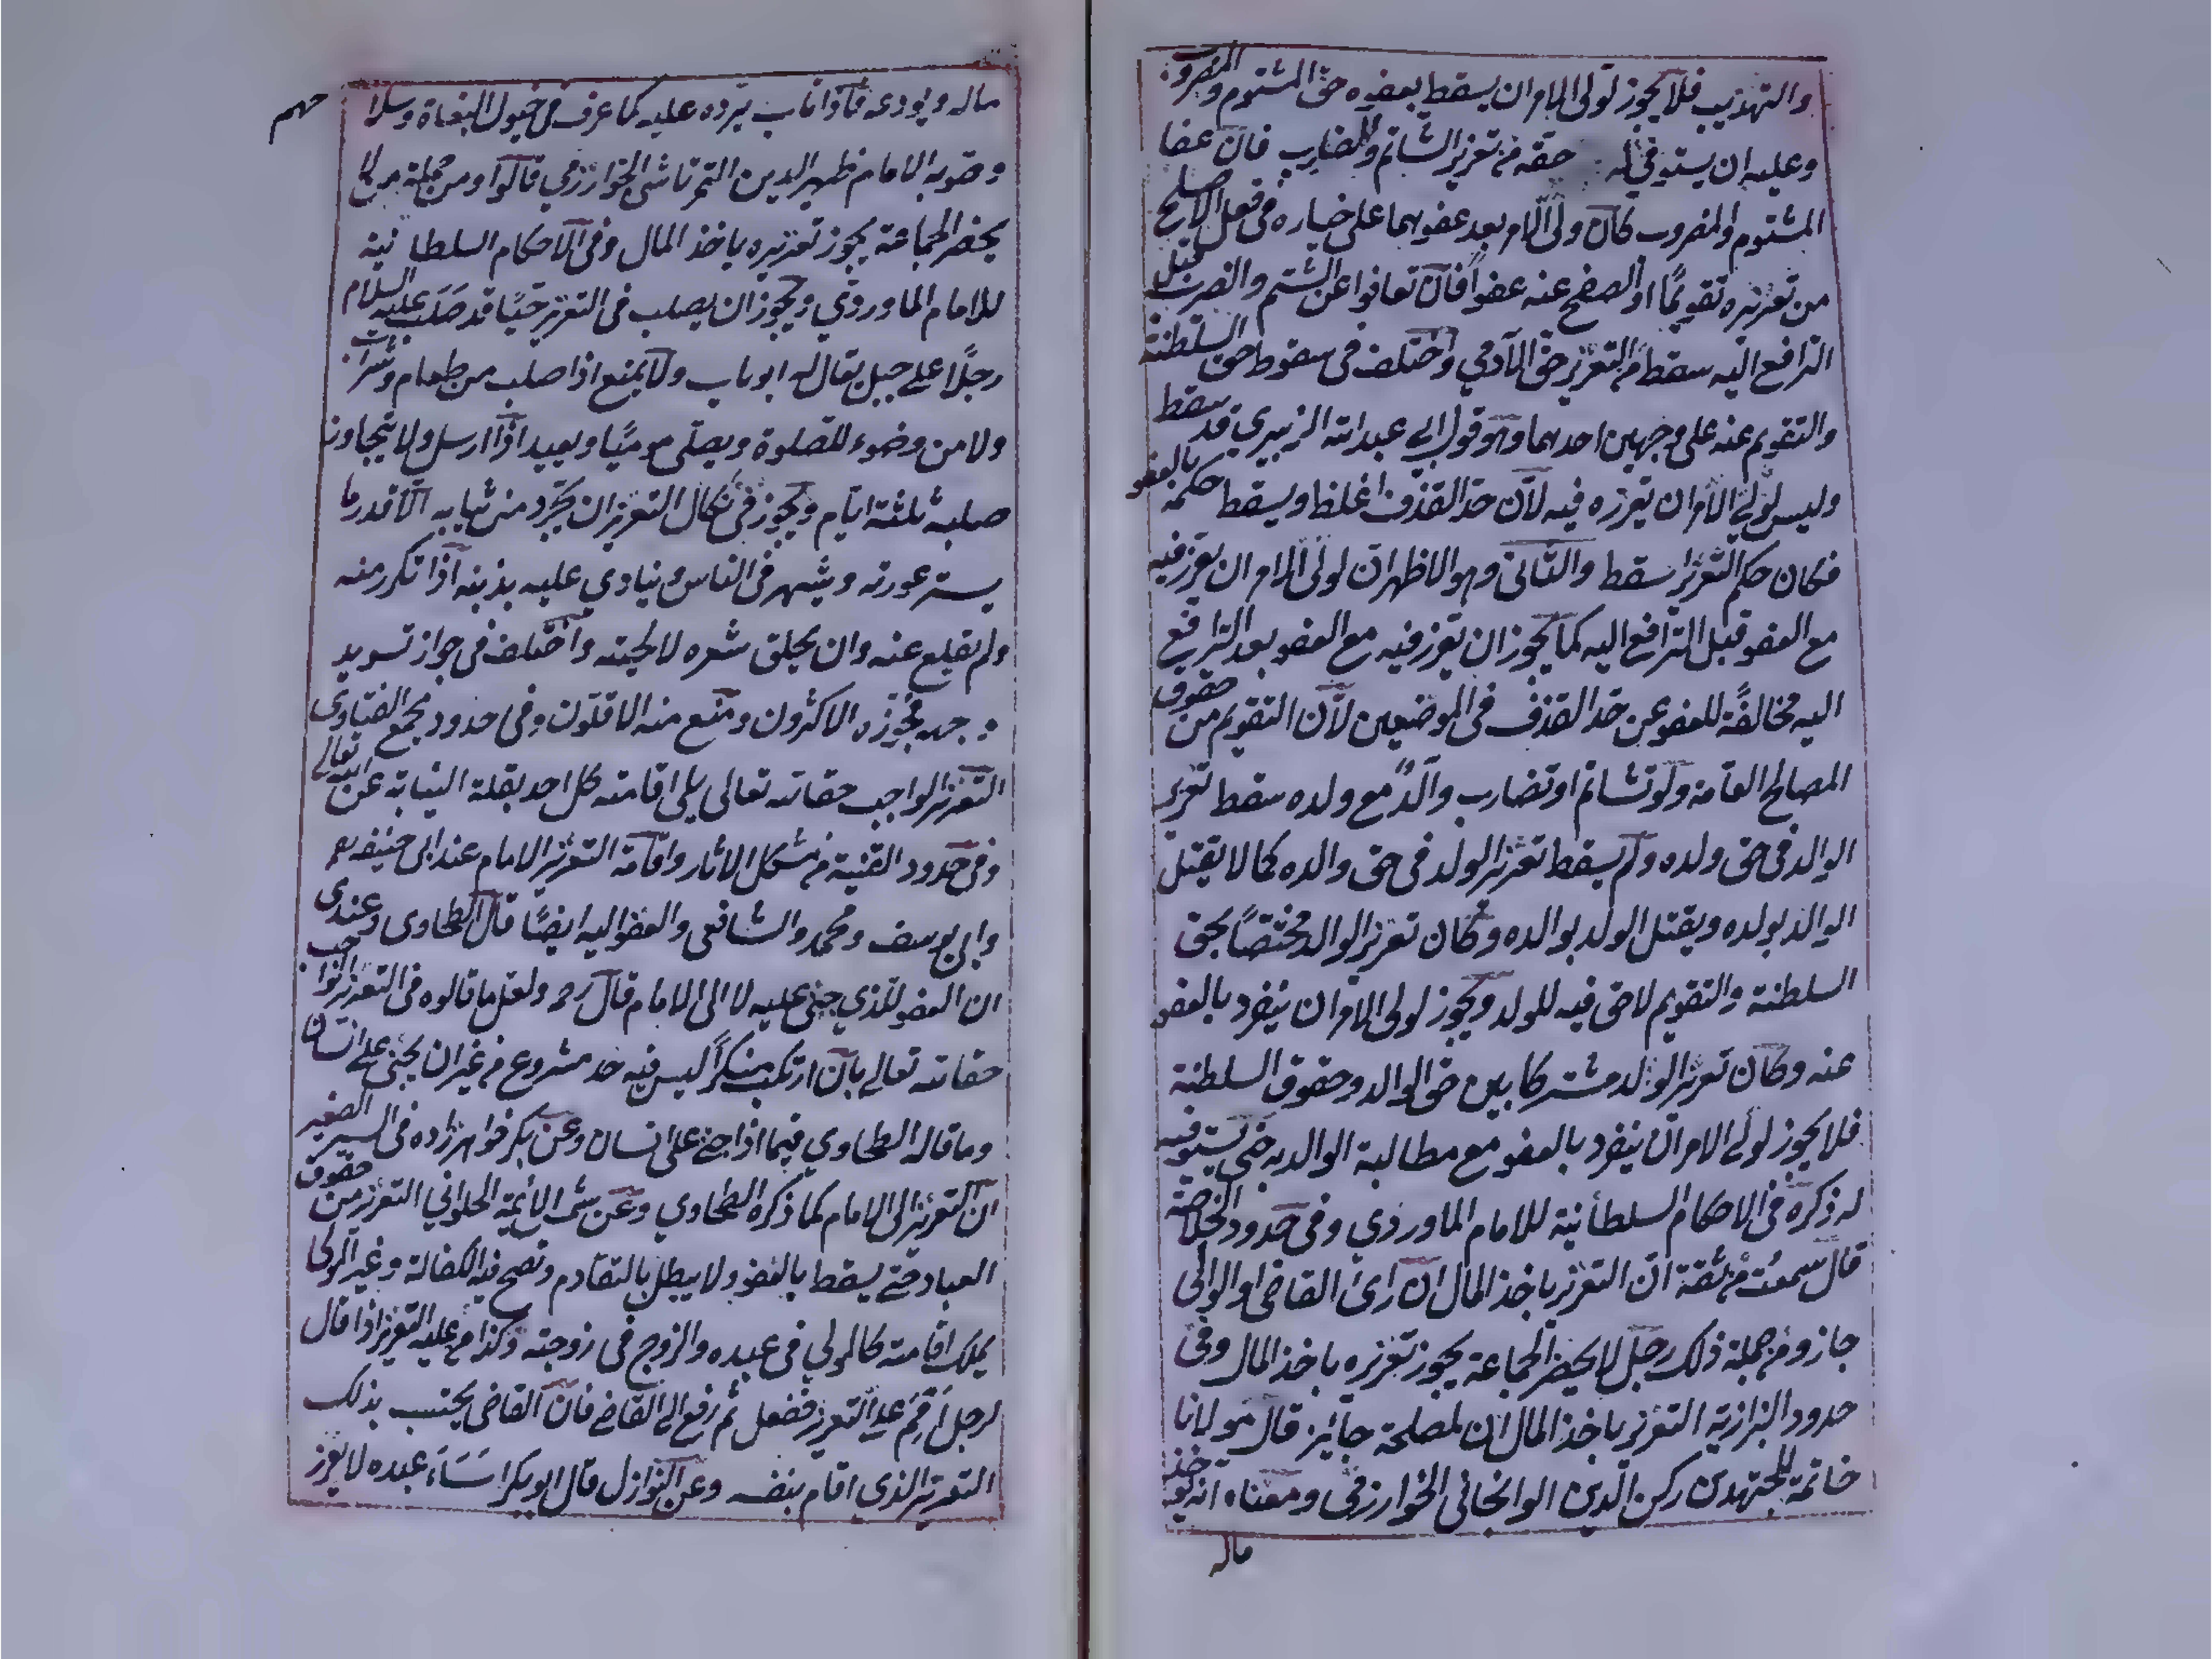 والتهذيب فلا يجوز لولى الامر ان يسقط بعفوه حق المشتوم والمضروب
وعليه ان يستوفي له حقه من تعزير الشاتم والضارب فان عفا
المشتوم والمضروب كان ولى الامر بعد عفوهما على خياره فى فعل الاصلح
من تعزيره تقويمًا او الصفح عنه عفوًا فان تعافوا عن الشتم والضرب قبل
الترافع اليه سقط من التعزير حق الآدمي واختلف فى سقوط حق السلطنة
والتقويم عنه على وجهين احدهما وهو قول ابي عبد الله الزبيري قد سقط
وليس لولي الامر ان يعزره فيه لان حد القذف اغلظ ويسقط حكمه بالعفو
فكان حكم التعزير اسقط والثانى وهو الاظهر ان لولى الامر ان يعزر فيه
مع العفو قبل الترافع اليه كما يجوز ان يعزر فيه مع العفو بعد الترافع
اليه مخالفةً للعفو عن حد القذف فى الموضعين لان التقويم من حقوق
المصالح العامة ولو تشاتم او تضارب والدٌ مع ولده سقط تعزير
الوالد فى حق ولده ولم يسقط تعزير الولد فى حق والده كما لا يقتل
الوالد بولده ويقتل الولد بوالده وكان تعزير الوالد مختصًا بحق
السلطنة والتقويم لا حق فيه للولد ويجوز لولى الامر ان ينفرد بالعفو
عنه وكان تعزير الولد مشتركا بين حق الوالد وحقوق السلطنة
فلا يجوز لولي الامر ان ينفرد بالعفو مع مطالبة الوالد به حتى يستوفيه
له ذكره فى الاحكام السلطانية للامام الماوردي وفى حدود الخلاصة
قال سمعت من ثقة ان التعزير باخذ المال ان راى القاضى او الوالى
جاز ومن جملة ذلك رجل لا يحضر الجماعة يجوز تعزيره باخذ المال وفى
حدود البزازية التعزير باخذ المال ان لمصلحة جائز قال مولانا
خاتمة المجتهدين ركن الدين الوانجاني الخوارزمى ومعناه ان ياخذ
ماله
ماله ويودعه فاذا تاب يرده عليه كما عرف فى خيول البغاة وسلا
حهم
وصوبه الامام ظهير الدين التمرتاشى الخوارزمي قالوا ومن جملة من لا
يحضر الجماعة يجوز تعزيره باخذ المال وفى الاحكام السلطانية
للامام الماوردي ويجوز ان يصلب فى التعزير حيًا قد صلب عليه السلام
رجلًا على جبل يقال له ابو ناب ولا يمنع اذا صلب من طعام وشراب
ولا من وضوء للصلوة ويصلى موميًا ويعيد اذا ارسل ولا يتجاوز
صلبه ثلثة ايام ويجوز فى نكال التعزير ان يجرد من ثيابه الا قدر ما
يستر عورته ويشهر فى الناس وينادي عليه بذنبه اذا تكرر منه
ولم يقلع عنه وان يحلق شعره لا لحيته واختلف فى جواز تسويد
وجهه فجوزه الاكثرون ومنع منه الاقلون وفى حدود مجمع الفتاوى
التعزير الواجب حقا لله تعالى يلى اقامته كل احد بقلة النيابة عن الله تعالى
وفى حدود القنية من مشكل الاثار واقامة التعزير الامام عند ابى حنيفه
وابى يوسف ومحمد والشافعى والعفو اليه ايضًا قال الطحاوى وعندى
ان العفو للذي جنى عليه لا الى الامام قال رح ولعل ما قالوه فى التعزير الواجب
حقا لله تعالى بان ارتكب منكرًا ليس فيه حد مشروع من غير ان يجنى على انسان
وما قاله الطحاوي فيما اذا جنى على انسان وعن بكر خواهرزاده فى السير الصغير
ان التعزير الى الامام كما ذكره الطحاوي وعن شمس الائمة الحلواني التعزير من حقوق
العباد حتى يسقط بالعفو ولا يبطل بالتقادم وتصح فيه الكفالة وغير المولى
يملك اقامته كالمولي فى عبده والزوج فى زوجته وكذا من عليه التعزير اذا قال
لرجل اقم علي التعزير ففعل ثم رفع الى القاضى فان القاضى يحتسب بذلك
التعزير الذى اقام بنفسه وعن النوازل قال ابو بكر اساء عبده لا يعزر